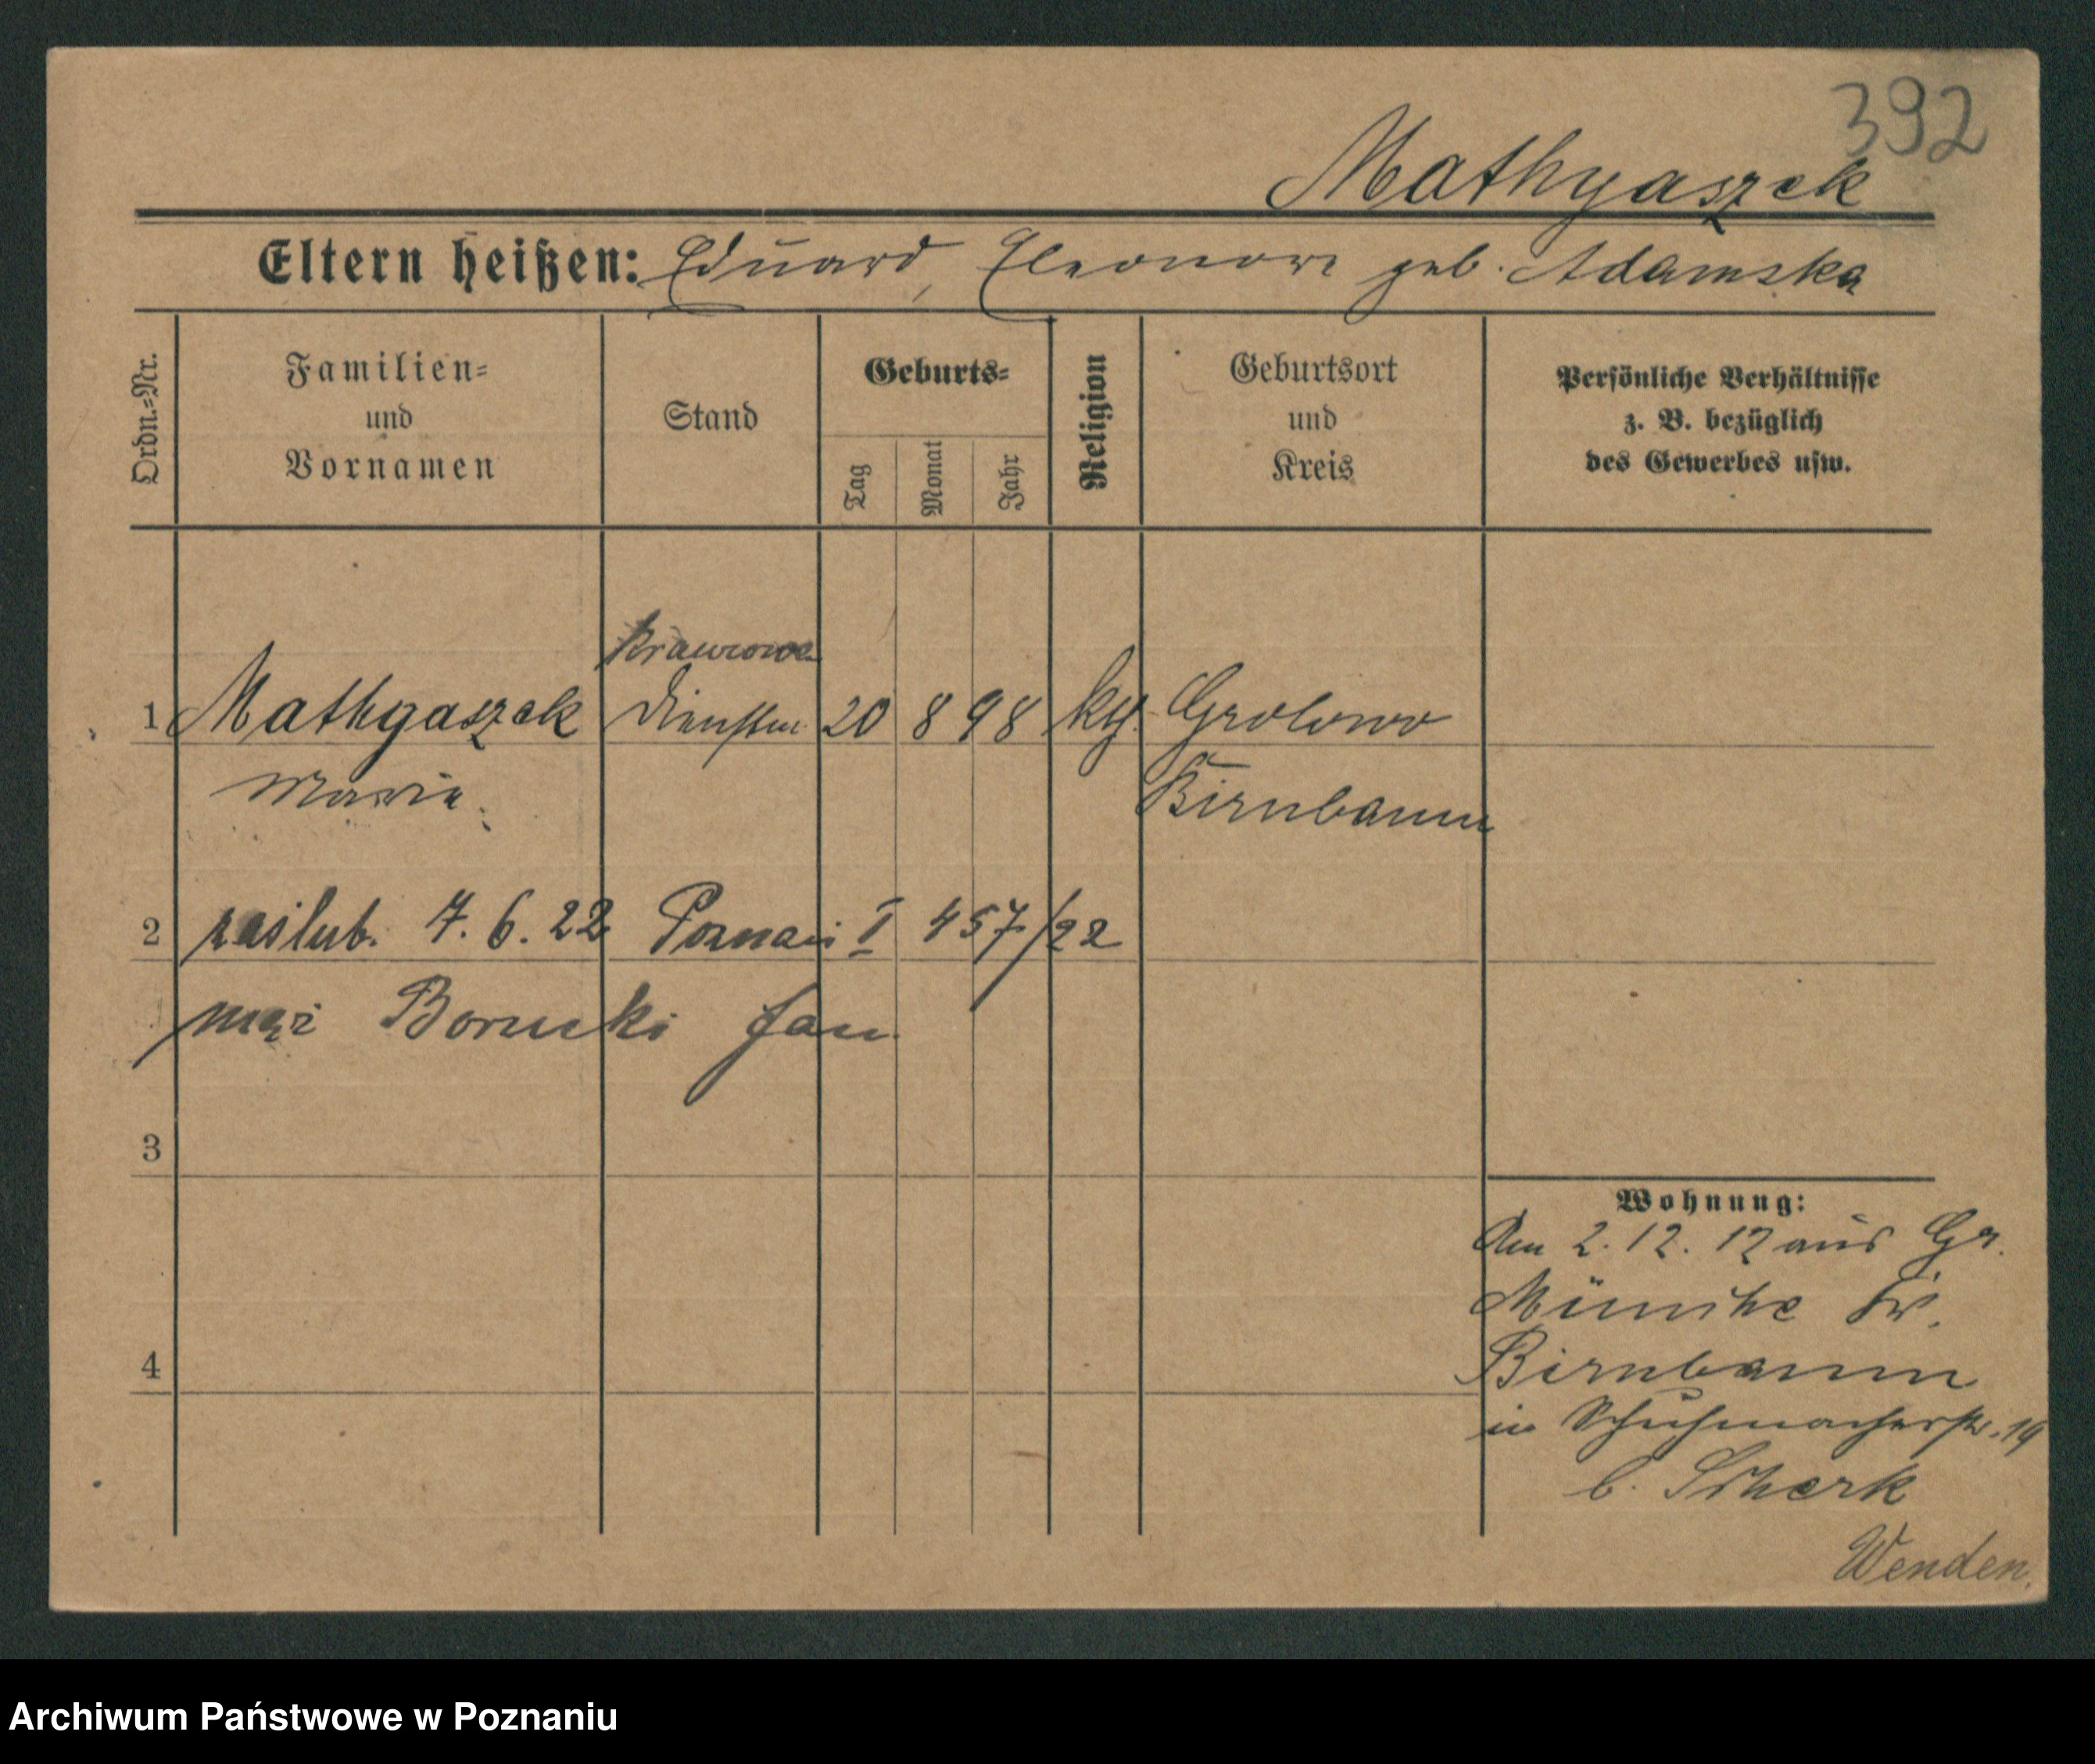 392
Mathyaszek
Eltern heißen: Eduard, Eleonore geb. Adamska
Ordn.-Nr.
Familien-
und
Vornamen
Stand
Geburts-
Tag
Monat
Jahr
Religion
Geburtsort
und
Kreis
Persönliche Verhältnisse
z. B. bezüglich
des Gewerbes usw.
krawcowa
1 Mathyaszek Dienstm. 20 8 98 kth. Grobowo
Marie. Birnbaum
2 zaślub. 7. 6. 22 Poznań I 457/22
mąż Borucki Jan
3
Wohnung:
Am 2. 12. 17 aus Gr.
Münche Kr.
4 Birnbaum
in Schuhmacherstr. 19
b. Scherk
Wenden.
Archiwum Państwowe w Poznaniu